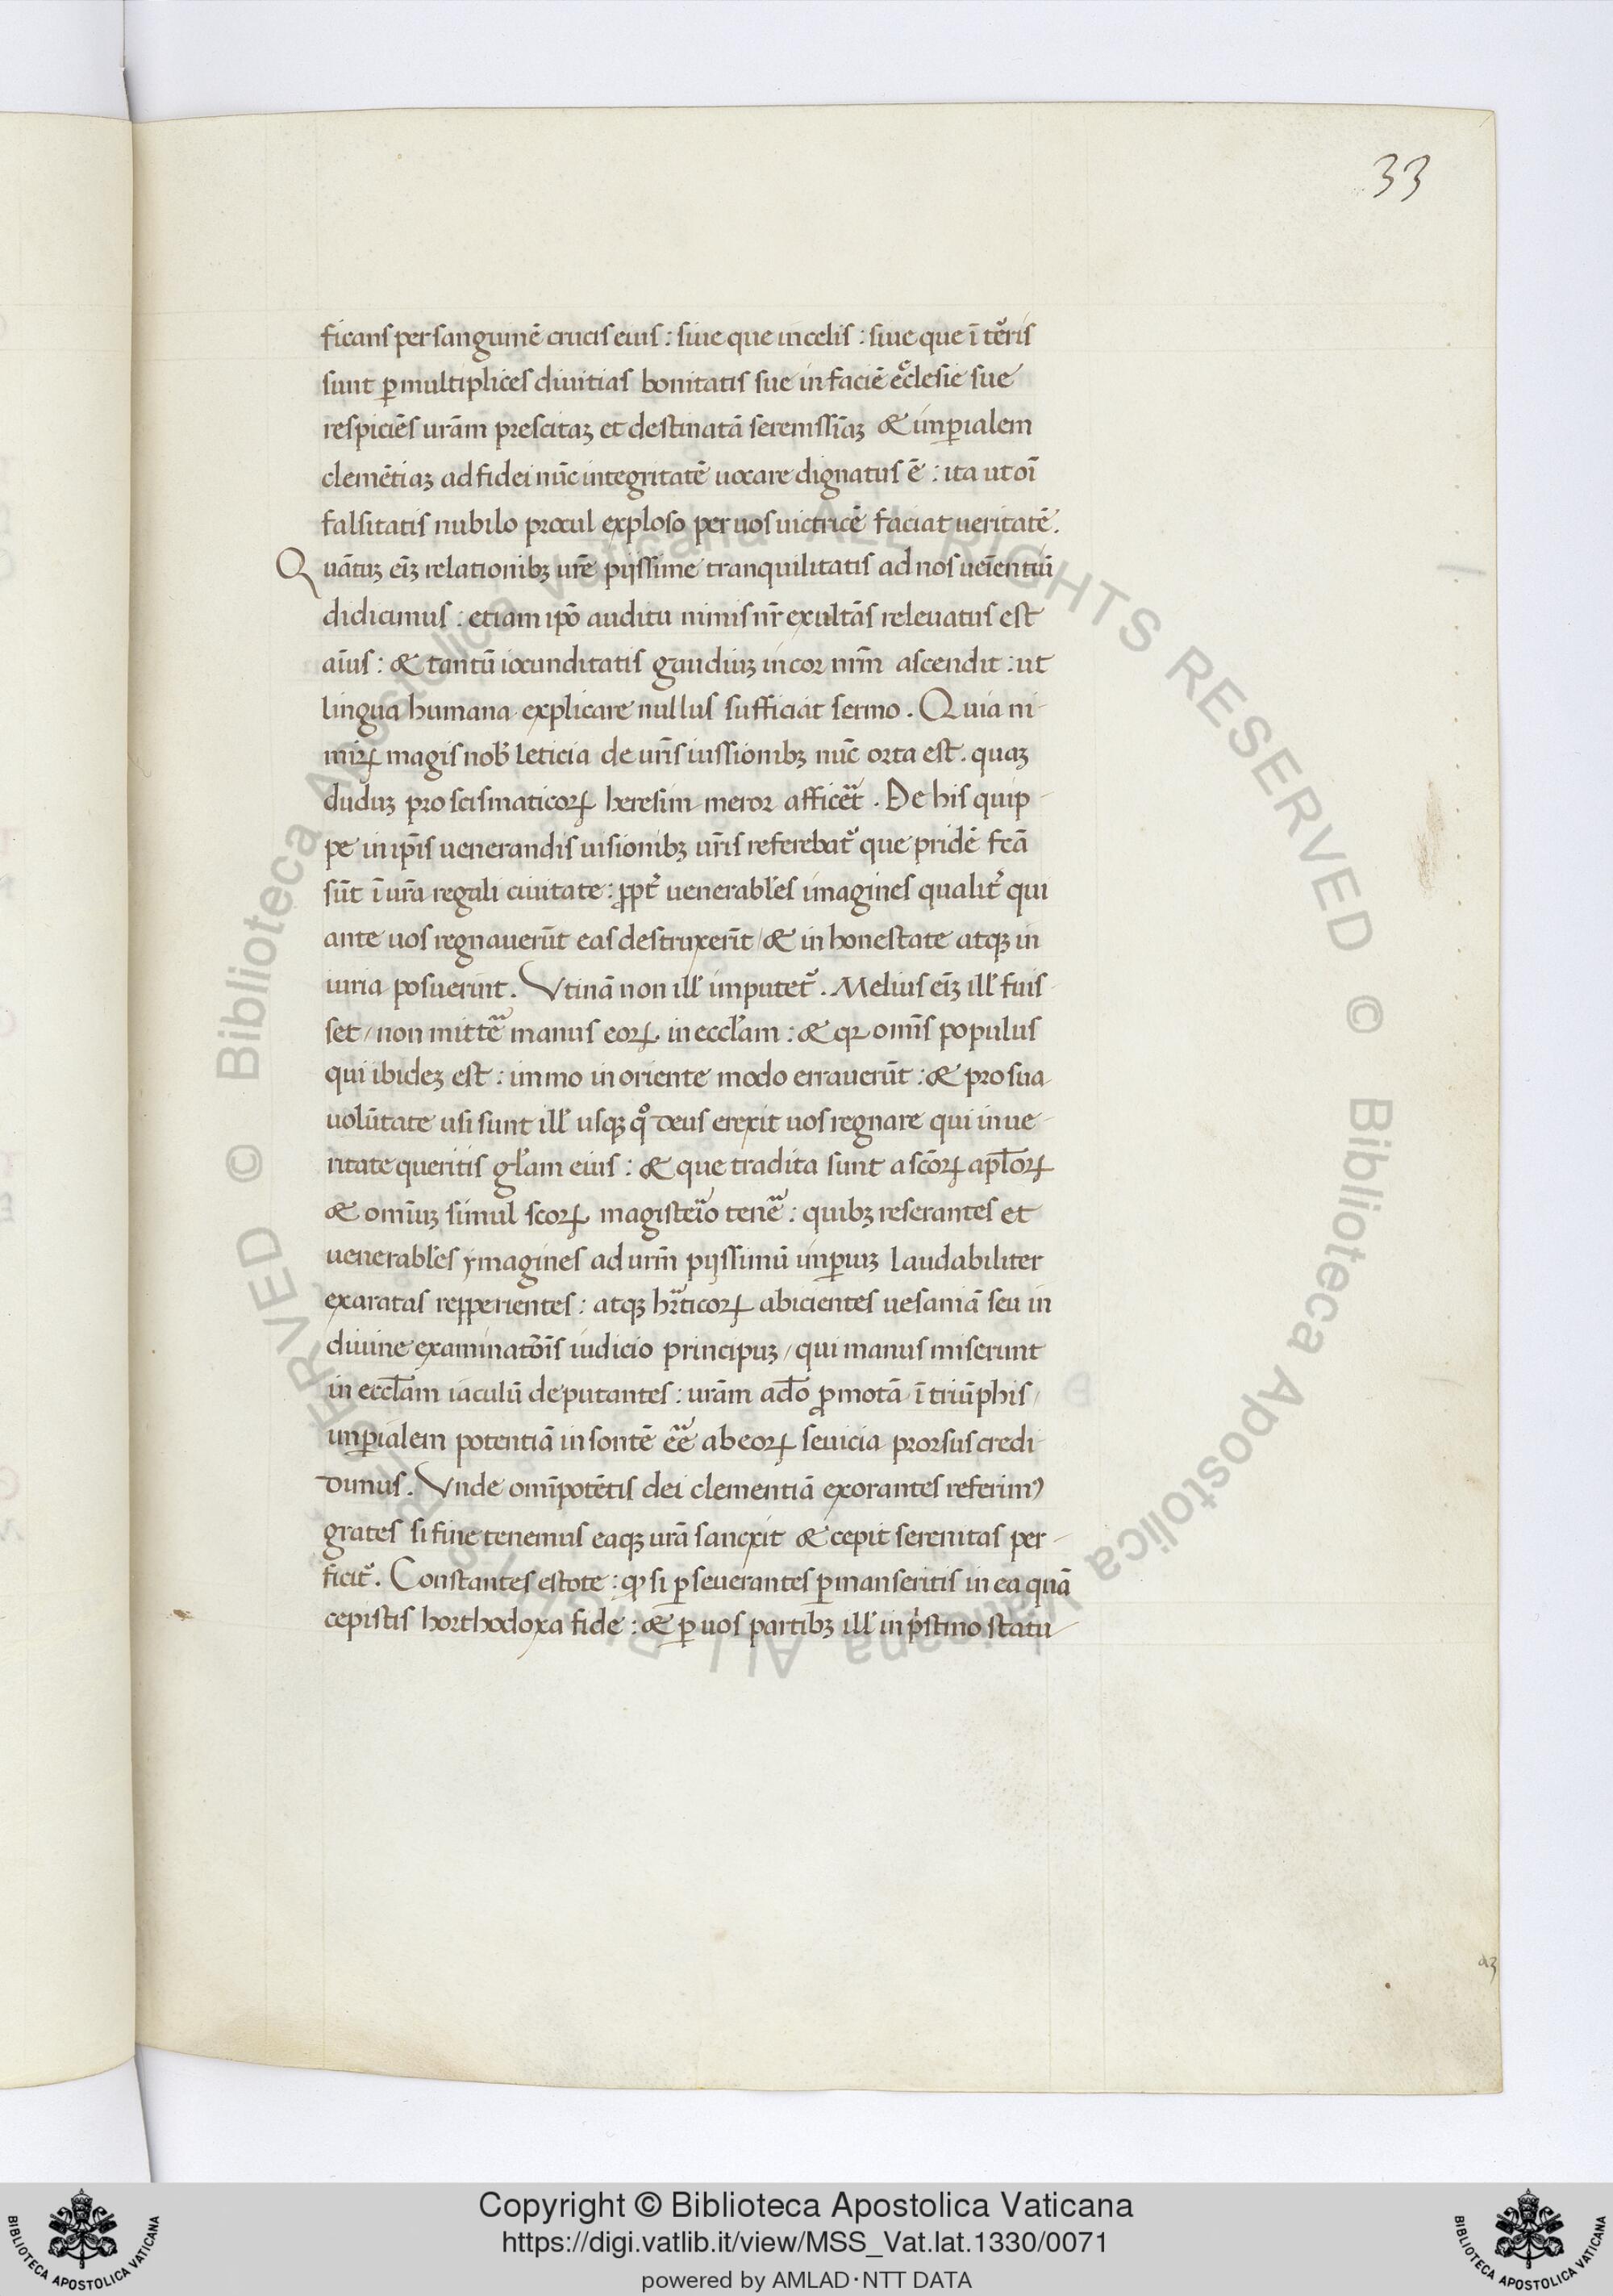 33
ficans per sanguinē crucis eius : siue que in celis : siue que ī terris
sunt ꝑ multiplices diuitias bonitatis sue in faciē ecclesie sue
respiciēs urām prescitaꝫ et destinatā serenissīaꝫ & imꝑialem
clemētiaꝫ ad fidei nūc integritatē uocare dignatus ē : ita ut oī
falsitatis nubilo procul exploso per uos uictricē faciat ueritatē.
Quātuꝫ eīꝫ relationibꝫ urē pijssime tranquilitatis ad nos ueīentiū
didicimus : etiam ipō auditu nimis nr̄ exultās releuatus est
aīus : & tantū iocunditatis gaudiuꝫ in cor nrm̄ ascendit : ut
lingua humana explicare nullus sufficiat sermo . Quia ni-
miꝝ magis nob̄ leticia de urīs iussionibꝫ nūc orta est . quaꝫ
duduꝫ pro scismaticoꝝ heresim meror afficeͣt . De his quip-
pe in ip̄is uenerandis uisionibꝫ ur̄is referebat᷑ que pridē fc̄a
sūt ī ura regali ciuitate : ꝓpt᷑ uenerabl̄es imagines qualit᷑ qui
ante uos regnauerūt eas destruxerīt / & in honestate atqꝫ in
iuria posuerint . Vtinā non ill̄ imputet᷑ . Melius eīꝫ ill̄ fuis-
set / non mitteͣ manus eoꝝ in eccl̄am : & qꝛ omīs populus
qui ibideꝫ est : immo in oriente modo errauerūt : & pro sua
uolūtate usi sunt ill̄ usqꝫ qͦ deus erexit uos regnare qui in ue-
ritate queritis gl̄am eius : & que tradita sunt a scōꝝ apl̄oꝝ
& omīuꝫ simul scoꝝ magisteͥo teneͣ : quibꝫ reserantes et
uenerabl̄es ymagines ad urm̄ pijssimū imꝑiuꝫ laudabiliter
exaratas repperientes : atqꝫ hr̄ticoꝝ abicientes uesaniā seu in
diuine examinatōis iudicio principuꝫ / qui manus miserunt
in eccl̄am iaculū deputantes : urām adō ꝓmotā ī triūphis /
imꝑialem potentiā insontē eē ab eoꝝ seuicia prorsus credi
dimus . Vnde omīpotētis dei clementiā exorantes referimꝰ
grates si fine tenemus eaqꝫ urā sancxit & cepit serenitas per-
ficit᷑ . Constantes estote : ꝙ si ꝑseuerantes ꝑmanseritis in ea quā
cepistis horthodoxa fide : & ꝑ uos partibꝫ ill̄ in pͥstino statu
© Biblioteca Apostolica Vaticana ALL RIGHTS RESERVED
© Biblioteca Apostolica Vaticana ALL RIGHTS RESERVED
Copyright © Biblioteca Apostolica Vaticana
https://digi.vatlib.it/view/MSS_Vat.lat.1330/0071
powered by AMLAD · NTT DATA
BIBLIOTECA APOSTOLICA VATICANA
BIBLIOTECA APOSTOLICA VATICANA